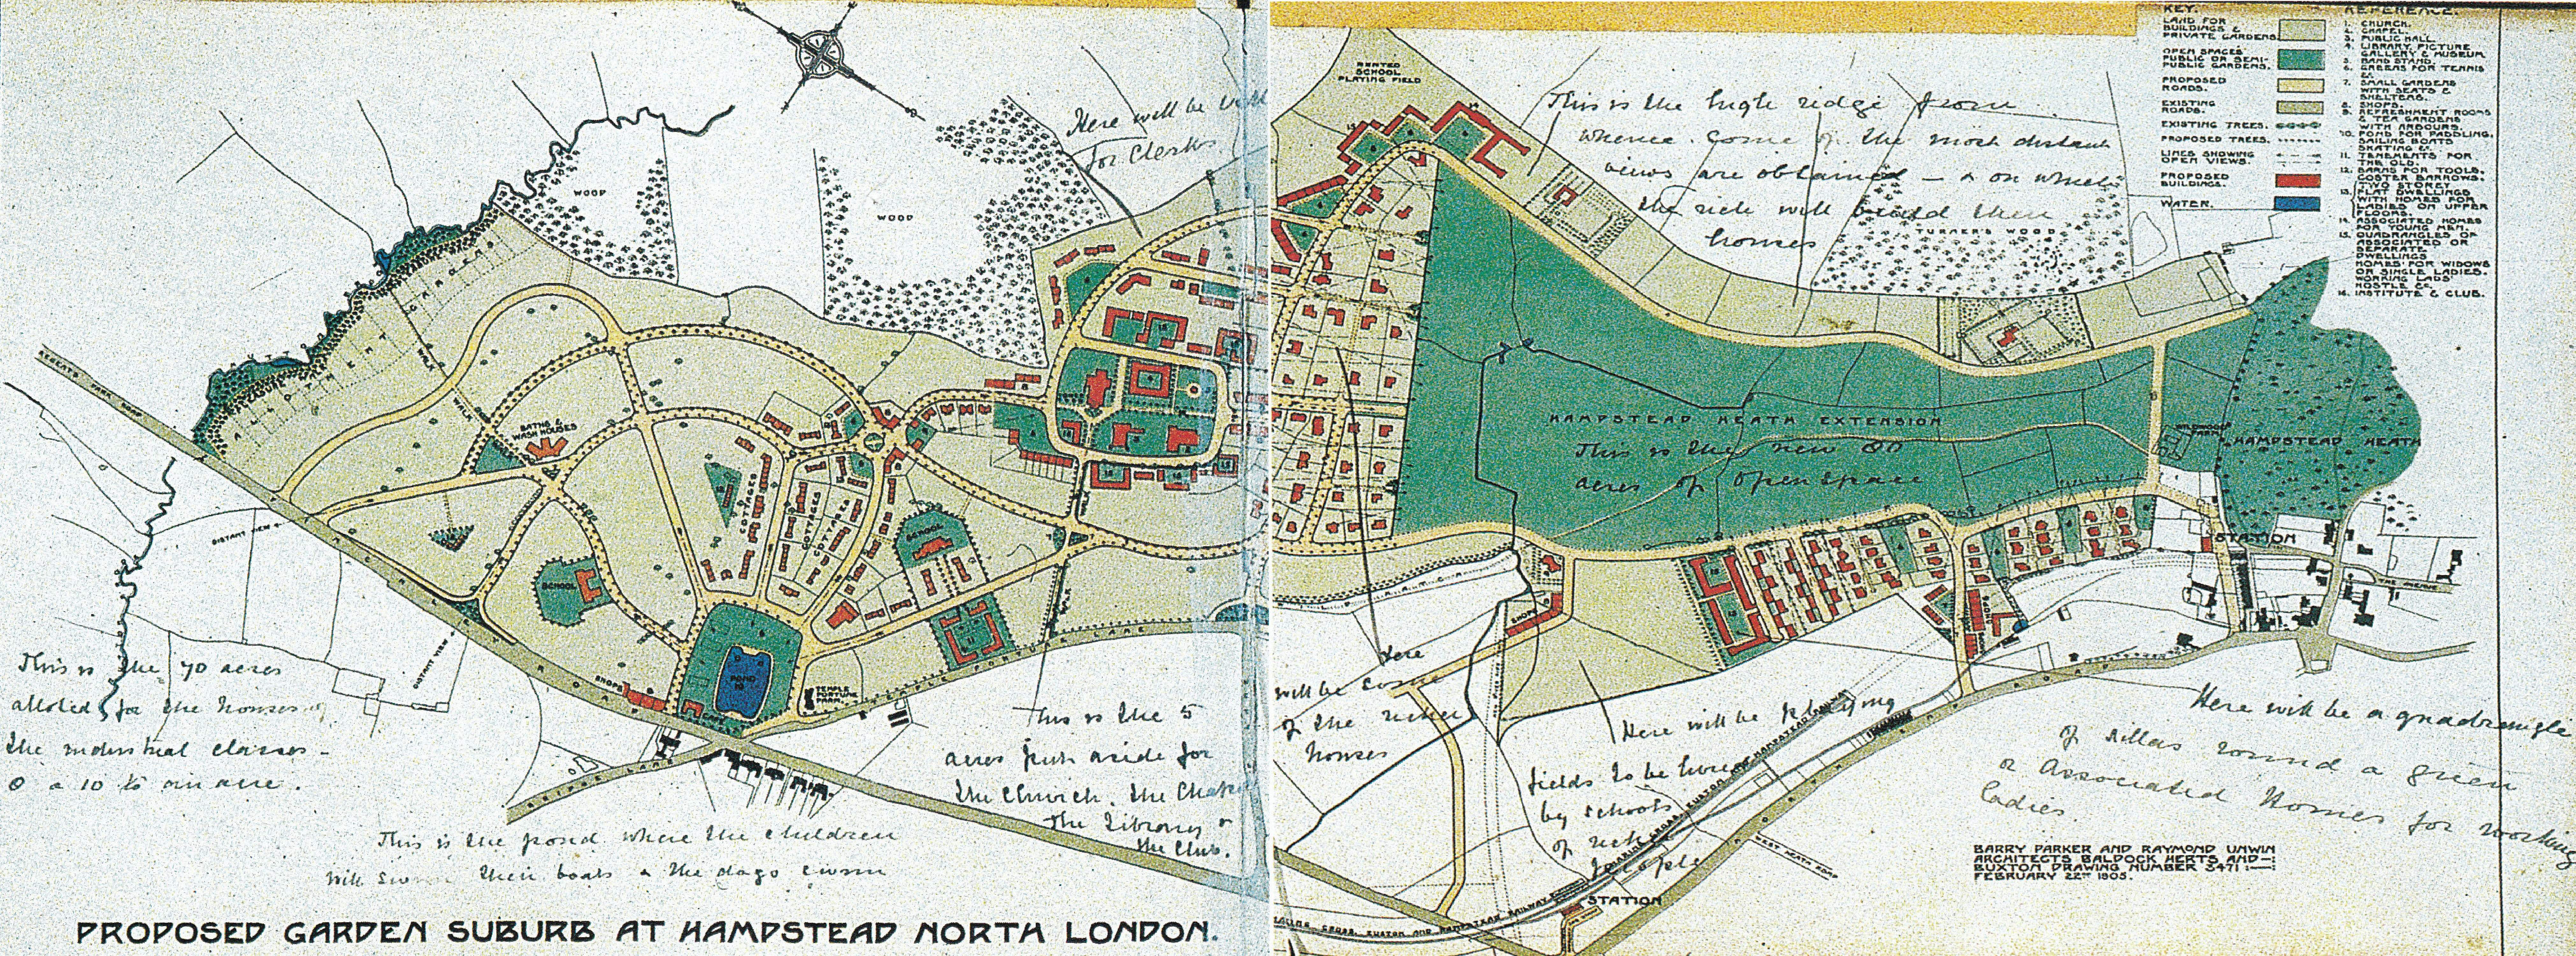 KEY.
LAND FOR
BUILDINGS &
PRIVATE GARDENS.
OPEN SPACES
PUBLIC OR SEMI-
PUBLIC GARDENS.
PROPOSED
ROADS.
EXISTING
ROADS.
EXISTING TREES.
PROPOSED TREES.
LINES SHOWING
OPEN VIEWS.
PROPOSED
BUILDINGS.
WATER.
REFERENCE.
1. CHURCH.
2. CHAPEL.
3. PUBLIC HALL.
4. LIBRARY, PICTURE
GALLERY & MUSEUM
5. BAND STAND.
6. GREENS FOR TENNIS
&c.
7. SMALL GARDENS
WITH SEATS &
SHELTERS.
8. SHOPS.
9. REFRESHMENT ROOMS
& TEA GARDENS
WITH ARBOURS.
10. POND FOR PADDLING,
SAILING BOATS
SKATING &c.
11. TENEMENTS FOR
THE OLD.
12. BARNS FOR TOOLS,
COSTER BARROWS.
13. TWO STOREY
FLAT DWELLINGS
WITH HOMES FOR
LADIES ON UPPER
FLOORS.
14. ASSOCIATED HOMES
FOR YOUNG MEN.
15. QUADRANGLES OF
ASSOCIATED OR
SEPARATE
DWELLINGS
HOMES FOR WIDOWS
OR SINGLE LADIES.
WORKING LADS'
HOSTLE &c.
16. INSTITUTE & CLUB.
RENTED
SCHOOL
PLAYING FIELD
This is the high ridge from
whence come the most distant
views are obtained – & on which
the rich will build their
houses
TURNER'S WOOD
Here will be
for Clerks.
WOOD
WOOD
ALLOTMENT GARDENS
WALK
WALK
REGENTS PARK ROAD
BATHS &
WASH HOUSES
COTTAGES
COTTAGES
COTTAGES
SCHOOL
SCHOOL
WALK
WALK
DISTANT VIEW
DISTANT VIEW
FINCHLEY ROAD
HAMPSTEAD HEATH EXTENSION
This is the new 80
acres of open space
WILDWOOD
FARM
HAMPSTEAD HEATH
STATION
THE AVENUE
SHOPS
SHOPS
CAFE
POND
10
TEMPLE
FORTUNE
FARM
TEMPLE FORTUNE LANE
BRIDGE LANE
SHOPS
This is the 70 acres
alloted for the houses of
the industrial classes –
@ a 10 to an acre.
This is the pond where the children
will swim their boats & the dogs swim
This is the 5
acres put aside for
the Church, the Chapel
the Library &
the Club.
Here
will be some
of the richer
houses
Here will be playing
fields to be hired
by schools
of rich
people
Here will be a quadrangle
of villas round a green
or Associated Homes for working
ladies.
WEST HEATH ROAD
CHARING CROSS, EUSTON AND HAMPSTEAD RAILWAY
STATION
BARRY PARKER AND RAYMOND UNWIN
ARCHITECTS BALDOCK HERTS AND
BUXTON DRAWING NUMBER 3471
FEBRUARY 22ND 1905.
PROPOSED GARDEN SUBURB AT HAMPSTEAD NORTH LONDON.